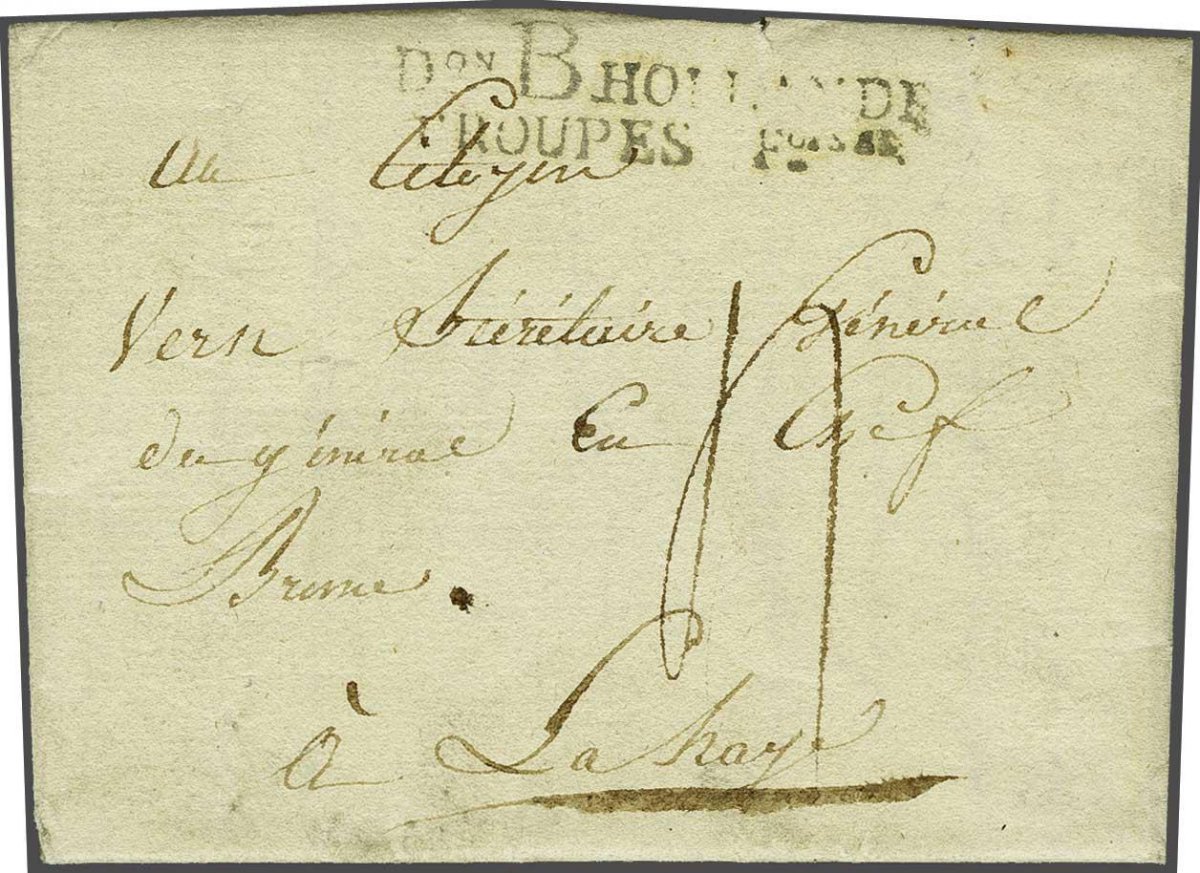 Don B HOLLANDE
TROUPES Foises
Au Citoyen
Vern Sécrétaire Général
du général En Chef
Brune
à Lahaye